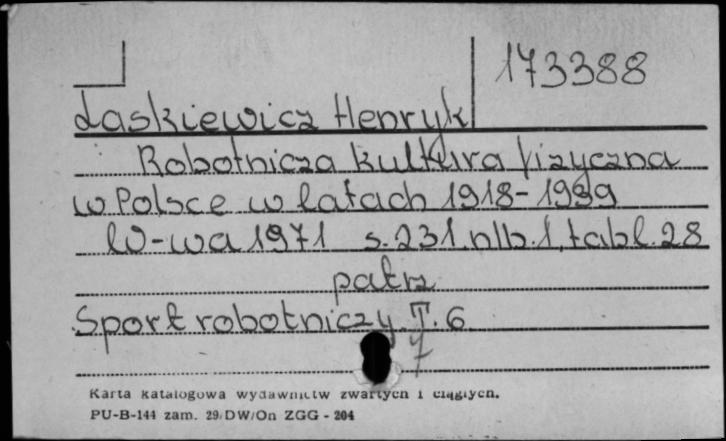 173388
Łaskiewicz Henryk
Robotnicza kultura fizyczna
w Polsce w latach 1918-1939
W-wa 1971 s. 231, nlb. 1, tabl. 28
patrz
Sport robotniczy T. 6
7
Karta katalogowa wydawnictw zwartych i ciągłych.
PU-B-144 zam. 29/DW/On ZGG - 204